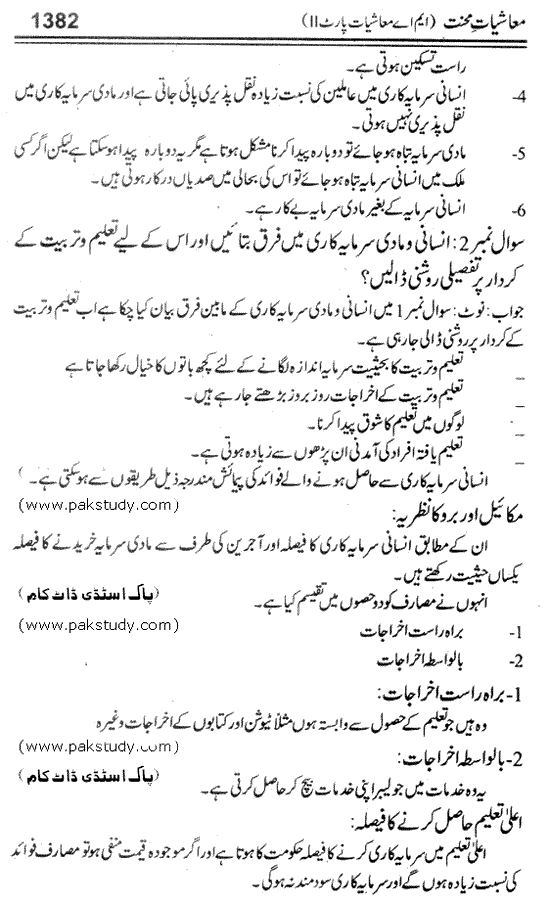 معاشیاتِ محنت (ایم اے معاشیات پارٹ II) 1382
راست تسکین ہوتی ہے۔
4- انسانی سرمایہ کاری میں عاملین کی نسبت زیادہ نقل پذیری پائی جاتی ہے اور مادی سرمایہ کاری میں
نقل پذیری نہیں ہوتی۔
5- مادی سرمایہ تباہ ہو جائے تو دوبارہ پیدا کرنا مشکل ہوتا ہے مگر یہ دوبارہ پیدا ہو سکتا ہے لیکن اگر کسی
ملک میں انسانی سرمایہ تباہ ہو جائے تو اس کی بحالی میں صدیاں درکار ہوتی ہیں۔
6- انسانی سرمایہ کے بغیر مادی سرمایہ بے کار ہے۔
سوال نمبر 2: انسانی و مادی سرمایہ کاری میں فرق بتائیں اور اس کے لیے تعلیم و تربیت کے
کردار پر تفصیلی روشنی ڈالیں؟
جواب: نوٹ: سوال نمبر 1 میں انسانی و مادی سرمایہ کاری کے مابین فرق بیان کیا چکا ہے اب تعلیم و تربیت
کے کردار پر روشنی ڈالی جا رہی ہے۔
_ تعلیم و تربیت کا بحیثیت سرمایہ اندازہ لگانے کے لئے کچھ باتوں کا خیال رکھا جاتا ہے
_ تعلیم و تربیت کے اخراجات روز بروز بڑھتے جا رہے ہیں۔
_ لوگوں میں تعلیم کا شوق پیدا کرنا۔
_ تعلیم یافتہ افراد کی آمدنی ان پڑھوں سے زیادہ ہوتی ہے۔
انسانی سرمایہ کاری سے حاصل ہونے والے فوائد کی پیمائش مندرجہ ذیل طریقوں سے ہو سکتی ہے۔ )
(www.pakstudy.com)
مکائیل اور بروکا نظریہ:
ان کے مطابق انسانی سرمایہ کاری کا فیصلہ اور آجرین کی طرف سے مادی سرمایہ خریدنے کا فیصلہ
یکساں حیثیت رکھتے ہیں۔
انہوں نے مصارف کو دو حصوں میں تقسیم کیا ہے۔ (پاک اسٹڈی ڈاٹ کام)
1- براہ راست اخراجات (www.pakstudy.com)
2- بالواسطہ اخراجات
1- براہ راست اخراجات:
وہ ہیں جو تعلیم کے حصول سے وابستہ ہوں مثلاً ٹیوشن اور کتابوں کے اخراجات وغیرہ
(www.pakstudy.com)
2- بالواسطہ اخراجات:
یہ وہ خدمات میں جو لیبر اپنی خدمات بیچ کر حاصل کرتی ہے۔ (پاک اسٹڈی ڈاٹ کام)
اعلیٰ تعلیم حاصل کرنے کا فیصلہ:
اعلیٰ تعلیم میں سرمایہ کاری کرنے کا فیصلہ حکومت کا ہوتا ہے اور اگر موجودہ قیمت منفی ہو تو مصارف فوائد
کی نسبت زیادہ ہوں گے اور سرمایہ کاری سودمند نہ ہو گی۔